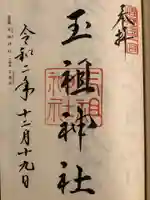 奉拝
玉祖神社
令和二年十二月十九日